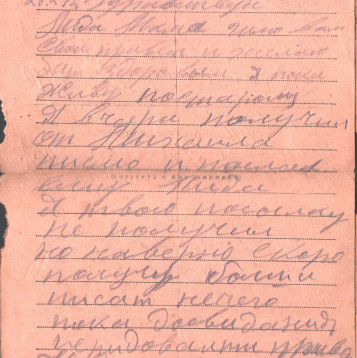 Здравствуй
Лида Мама шлю вам
свой привет и желаю
вам здоровья я пока
живу постарому
Я вчера получил
от Михаила
писмо и послал
ему Лида
Я твою посылку
не получил
но наверно скоро
получу болши
писат нечего
пока досвидания